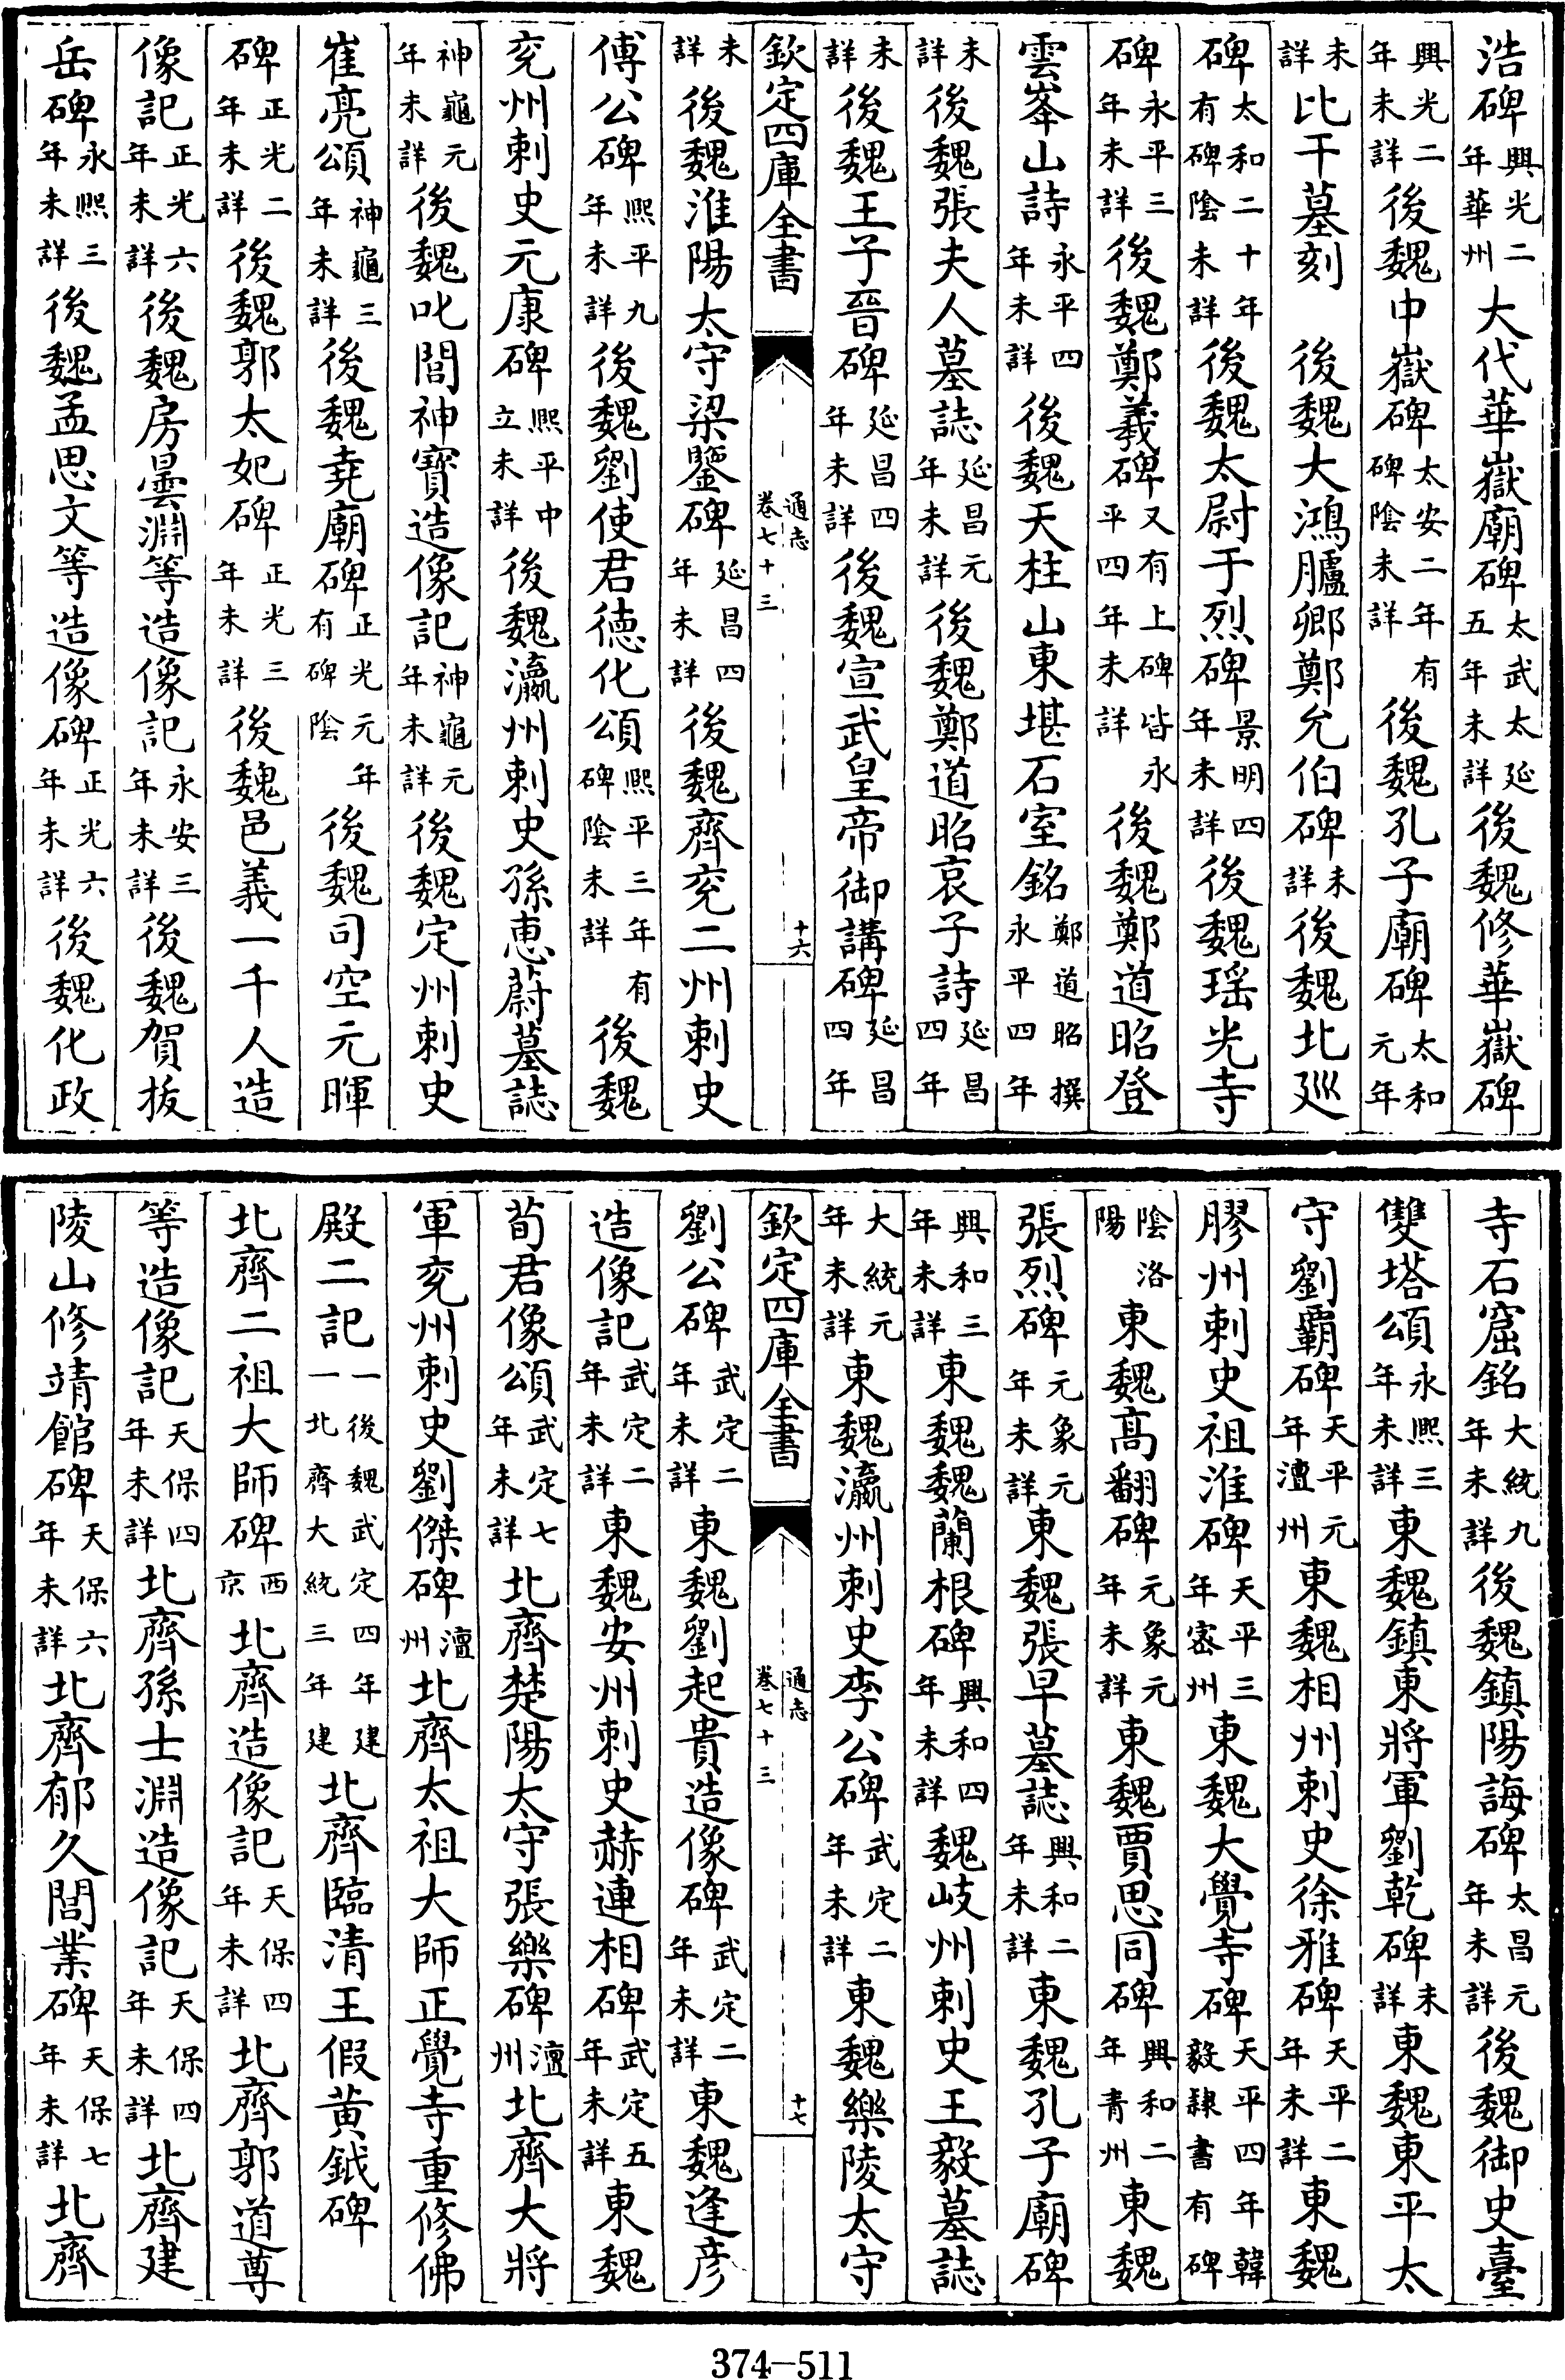 浩碑興光二年華州大代華嶽廟碑太武太延五年未詳後魏修華嶽碑
興光二年未詳後魏中嶽碑太安二年有碑陰未詳後魏孔子廟碑太和元年
未詳比干墓刻後魏大鴻臚卿鄭允伯碑未詳後魏北巡
碑太和二十年有碑陰未詳後魏太尉于烈碑景明四年未詳後魏瑶光寺
碑永平三年未詳後魏鄭羲碑又有上碑皆永平四年未詳後魏鄭道昭登
雲峯山詩永平四年未詳後魏天柱山東堪石室銘鄭道昭撰永平四年
未詳後魏張夫人墓誌延昌元年未詳後魏鄭道昭哀子詩延昌四年
未詳後魏王子晉碑延昌四年未詳後魏宣武皇帝御講碑延昌四年
欽定四庫全書
通志
卷七十三
十六
未詳後魏淮陽太守梁鑒碑延昌四年未詳後魏齊兖二州刺史
傅公碑熙平九年未詳後魏劉使君德化頌熙平三年有碑陰未詳後魏
兖州刺史元康碑熙平中立未詳後魏瀛州刺史孫惠蔚墓誌
神龜元年未詳後魏叱閭神寶造像記神龜元年未詳後魏定州刺史
崔亮頌神龜三年未詳後魏堯廟碑正光元年有碑陰後魏司空元暉
碑正光二年未詳後魏郭太妃碑正光三年未詳後魏邑義一千人造
像記正光六年未詳後魏房曇淵等造像記永安三年未詳後魏賀拔
岳碑永熙三年未詳後魏孟思文等造像碑正光六年未詳後魏化政
寺石窟銘大統九年未詳後魏鎮陽誨碑太昌元年未詳後魏御史臺
雙塔頌永熙三年未詳東魏鎮東將軍劉乾碑未詳東魏東平太
守劉霸碑天平元年澶州東魏相州刺史徐雅碑天平二年未詳東魏
膠州刺史祖淮碑天平三年密州東魏大覺寺碑天平四年韓毅隷書有碑
陰洛陽東魏高翻碑元象元年未詳東魏賈思同碑興和二年青州東魏
張烈碑元象元年未詳東魏張早墓誌興和二年未詳東魏孔子廟碑
興和三年未詳東魏魏蘭根碑興和四年未詳魏岐州刺史王毅墓誌
大統元年未詳東魏瀛州刺史李公碑武定二年未詳東魏樂陵太守
欽定四庫全書
通志
卷七十三
十七
劉公碑武定二年未詳東魏劉起貴造像碑武定二年未詳東魏逢彦
造像記武定二年未詳東魏安州刺史赫連栩碑武定五年未詳東魏
荀君像頌武定七年未詳北齊楚陽太守張樂碑澶州北齊大將
軍兖州刺史劉傑碑澶州北齊太祖大師正覺寺重修佛
殿二記一後魏武定四年建一北齊大統三年建北齊臨清王假黄鉞碑
北齊二祖大師碑西京北齊造像記天保四年未詳北齊郭道尊
等造像記天保四年未詳北齊孫士淵造像記天保四年未詳北齊建
陵山修靖館碑天保六年未詳北齊郁久閭業碑天保七年未詳北齊
374-511